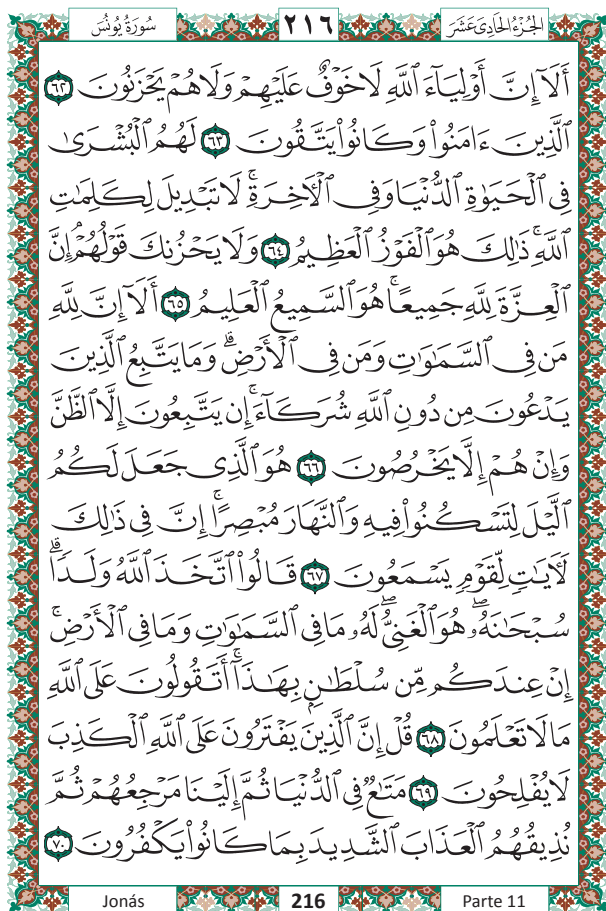 سُورَةُ يُونُسَ ٢١٦ الجُزْءُ الحَادِي عَشَرَ
أَلَآ إِنَّ أَوْلِيَآءَ ٱللَّهِ لَا خَوْفٌ عَلَيْهِمْ وَلَا هُمْ يَحْزَنُونَ ٦٢
ٱلَّذِينَ ءَامَنُوا۟ وَكَانُوا۟ يَتَّقُونَ ٦٣ لَهُمُ ٱلْبُشْرَىٰ
فِى ٱلْحَيَوٰةِ ٱلدُّنْيَا وَفِى ٱلْأَخِرَةِ ۚ لَا تَبْدِيلَ لِكَلِمَٰتِ
ٱللَّهِ ۚ ذَٰلِكَ هُوَ ٱلْفَوْزُ ٱلْعَظِيمُ ٦٤ وَلَا يَحْزُنكَ قَوْلُهُمْ ۘ إِنَّ
ٱلْعِزَّةَ لِلَّهِ جَمِيعًا ۚ هُوَ ٱلسَّمِيعُ ٱلْعَلِيمُ ٦٥ أَلَآ إِنَّ لِلَّهِ
مَن فِى ٱلسَّمَٰوَٰتِ وَمَن فِى ٱلْأَرْضِ ۗ وَمَا يَتَّبِعُ ٱلَّذِينَ
يَدْعُونَ مِن دُونِ ٱللَّهِ شُرَكَآءَ ۚ إِن يَتَّبِعُونَ إِلَّا ٱلظَّنَّ
وَإِنْ هُمْ إِلَّا يَخْرُصُونَ ٦٦ هُوَ ٱلَّذِى جَعَلَ لَكُمُ
ٱلَّيْلَ لِتَسْكُنُوا۟ فِيهِ وَٱلنَّهَارَ مُبْصِرًا ۚ إِنَّ فِى ذَٰلِكَ
لَأَيَٰتٍ لِّقَوْمٍ يَسْمَعُونَ ٦٧ قَالُوا۟ ٱتَّخَذَ ٱللَّهُ وَلَدًا ۗ
سُبْحَٰنَهُۥ ۖ هُوَ ٱلْغَنِىُّ ۖ لَهُۥ مَا فِى ٱلسَّمَٰوَٰتِ وَمَا فِى ٱلْأَرْضِ ۚ
إِنْ عِندَكُم مِّن سُلْطَٰنٍۭ بِهَٰذَآ ۚ أَتَقُولُونَ عَلَى ٱللَّهِ
مَا لَا تَعْلَمُونَ ٦٨ قُلْ إِنَّ ٱلَّذِينَ يَفْتَرُونَ عَلَى ٱللَّهِ ٱلْكَذِبَ
لَا يُفْلِحُونَ ٦٩ مَتَٰعٌ فِى ٱلدُّنْيَا ثُمَّ إِلَيْنَا مَرْجِعُهُمْ ثُمَّ
نُذِيقُهُمُ ٱلْعَذَابَ ٱلشَّدِيدَ بِمَا كَانُوا۟ يَكْفُرُونَ ٧٠
Jonás 216 Parte 11